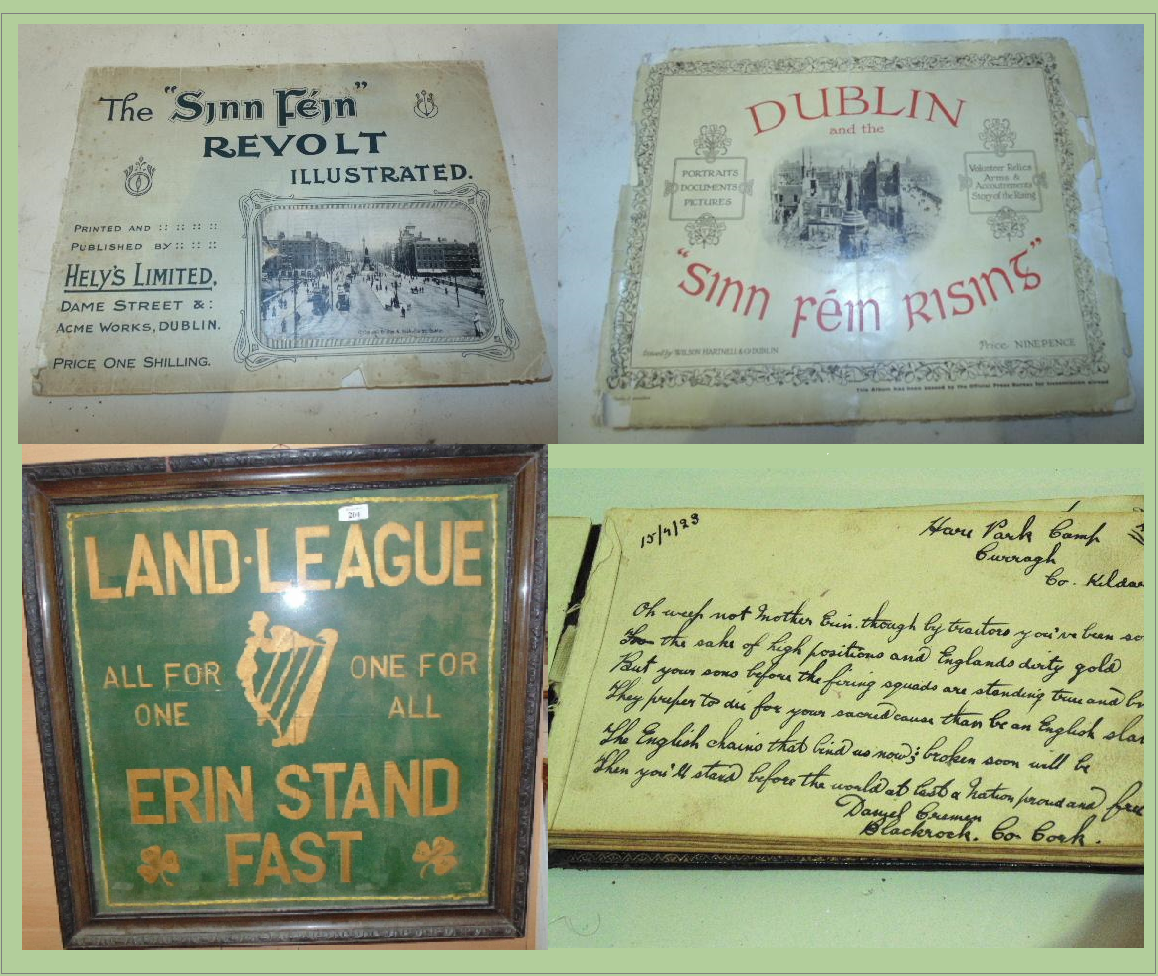 The "Sinn Féin"
REVOLT
ILLUSTRATED.
PRINTED AND :: :: :: ::
PUBLISHED BY :: :: ::
HELY'S LIMITED,
DAME STREET & :
ACME WORKS, DUBLIN.
PRICE ONE SHILLING.
DUBLIN
and the
PORTRAITS
DOCUMENTS
PICTURES
Volunteer Relics
Arms &
Accoutrements
Story of the Rising
"Sinn Féin RISING"
Issued by WILSON HARTNELL & Co DUBLIN
Price, NINEPENCE
This Album has been passed by the Official Press Bureau for transmission abroad
204
LAND·LEAGUE
ALL FOR
ONE
ONE FOR
ALL
ERIN STAND
FAST
15/9/23
Hare Park Camp
Curragh
Co. Kildar
Oh weep not Mother Erin. though by traitors you've been so
For the sake of high positions and Englands dirty gold
But your sons before the firing squads are standing true and br
They preper to die for your sacred cause than be an English slav
The English chains that bind us now; broken soon will be
Then you'll stand before the world at last a Nation proud and free
Daniel Cremen
Blackrock. Co Cork.